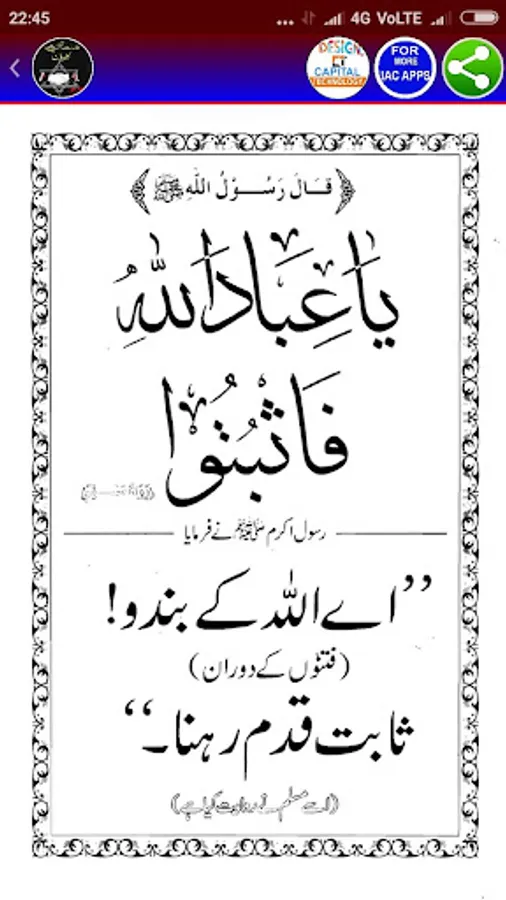 22:45
... 4G VoLTE
DESIGN
BY
CAPITAL
TECHNOLOGY
FOR
MORE
IAC APPS
قَالَ رَسُوْلُ اللّٰهِ ﷺ
يَا عِبَادَ اللّٰهِ
فَاثْبُتُوْا
رسول اکرم ﷺ نے فرمایا
”اے اللہ کے بندو!
(فتنوں کے دوران)
ثابت قدم رہنا۔“
(اسے مسلم نے روایت کیا ہے)